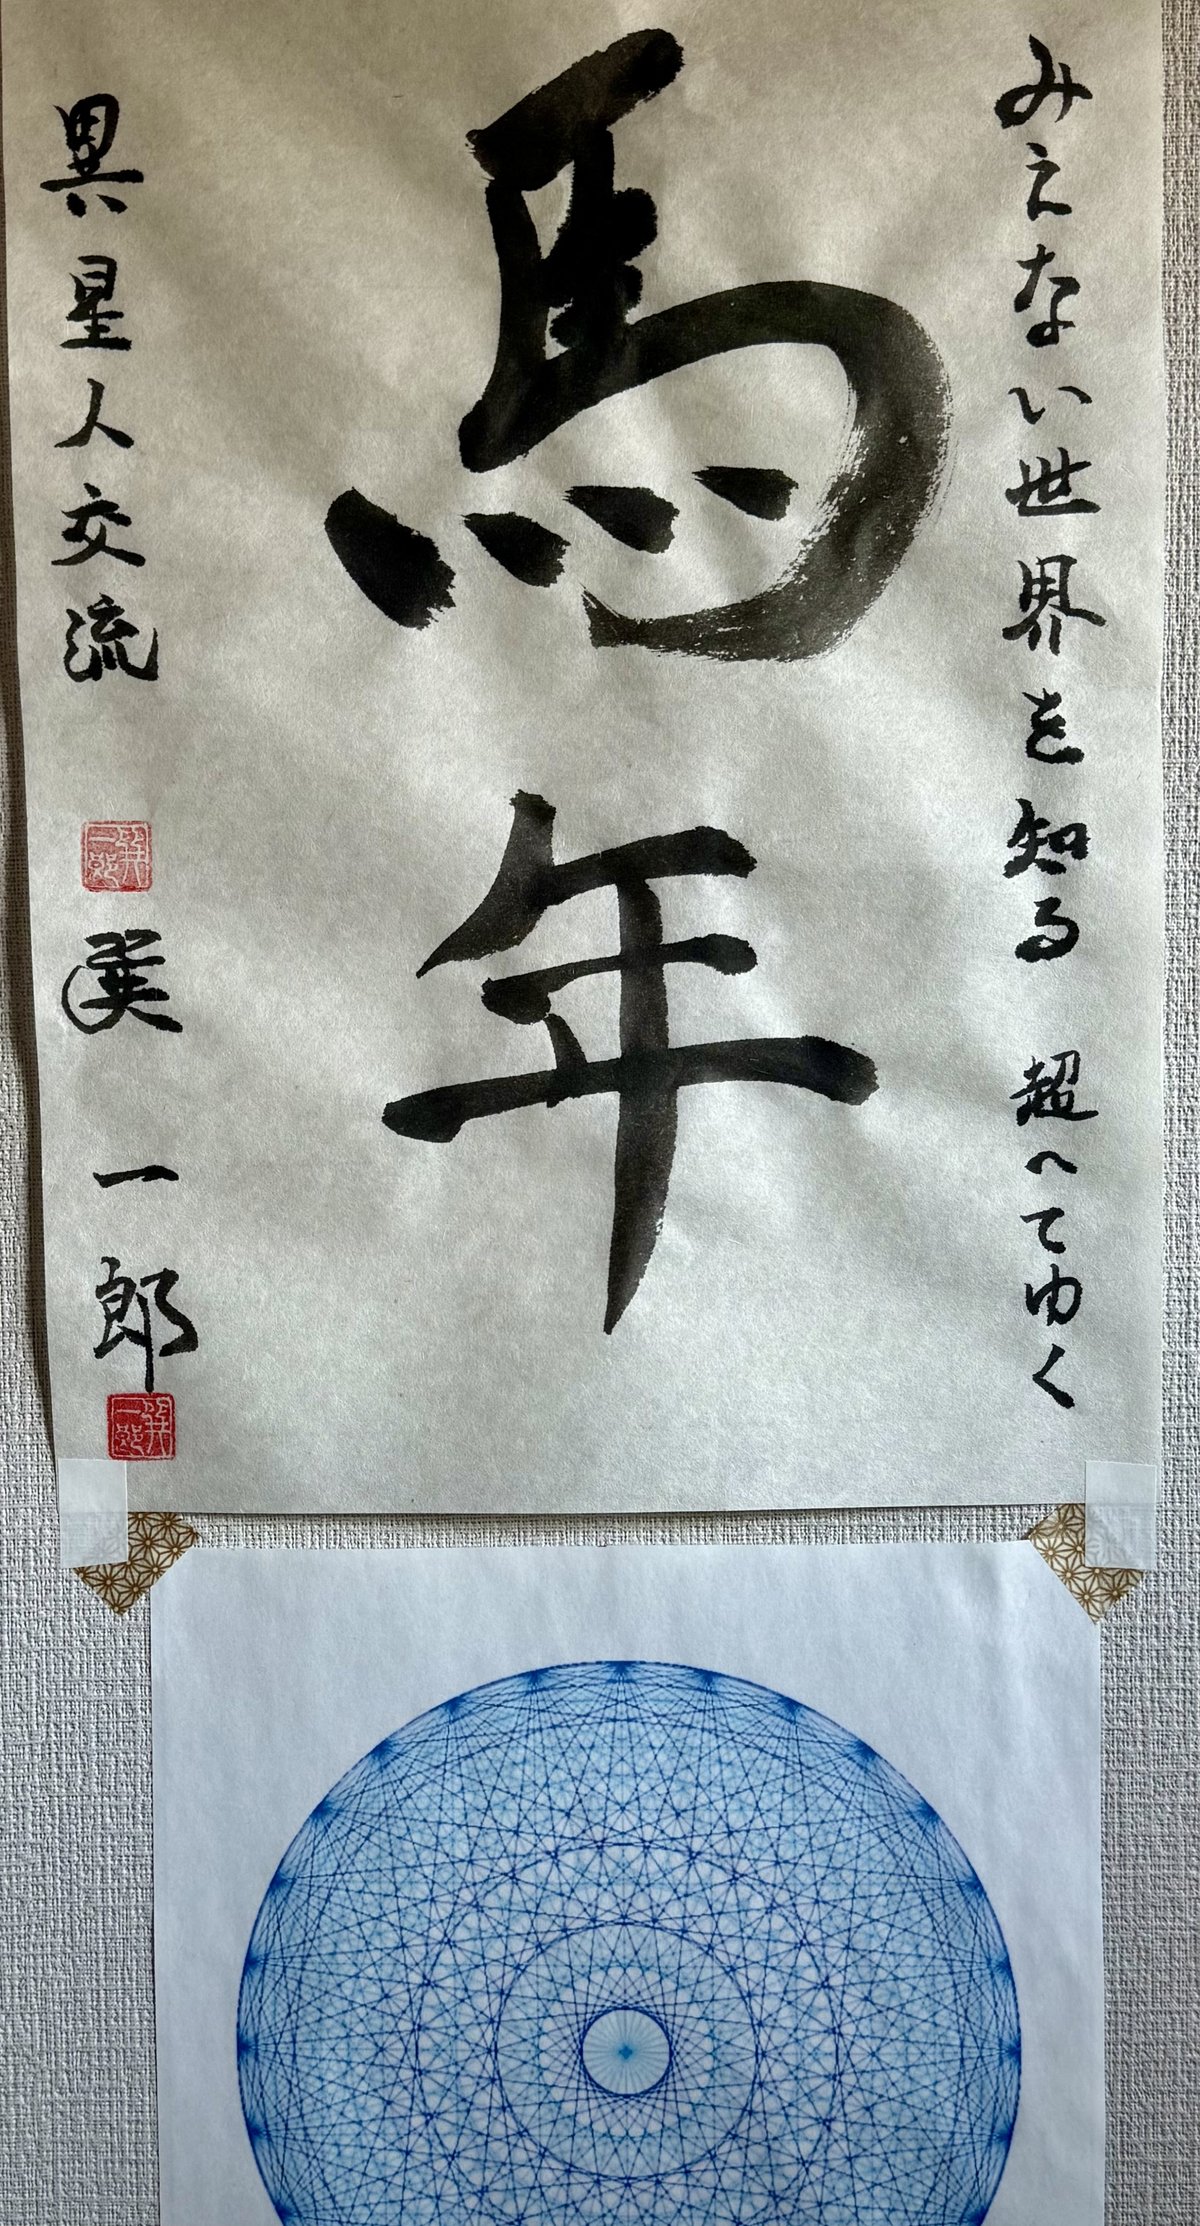 みえない世界を知る 超へてゆく
馬年
異星人交流
一郎